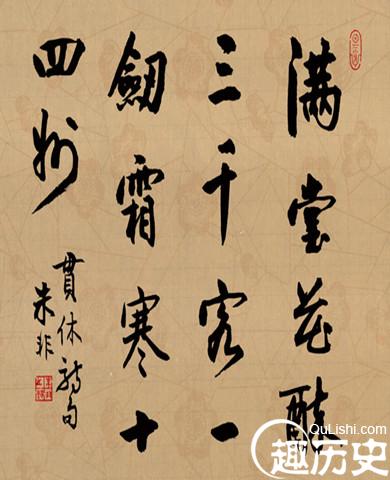 满堂花醉
三千客一
劍霜寒十
四州
貫休詩句
朱非
QuLishi.com
趣历史